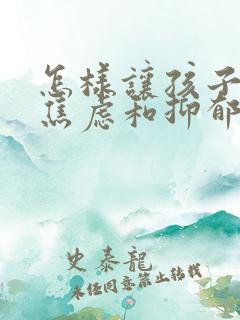 怎樣讓孩子
焦虑和抑郁
史泰龍
未经同意禁止转载